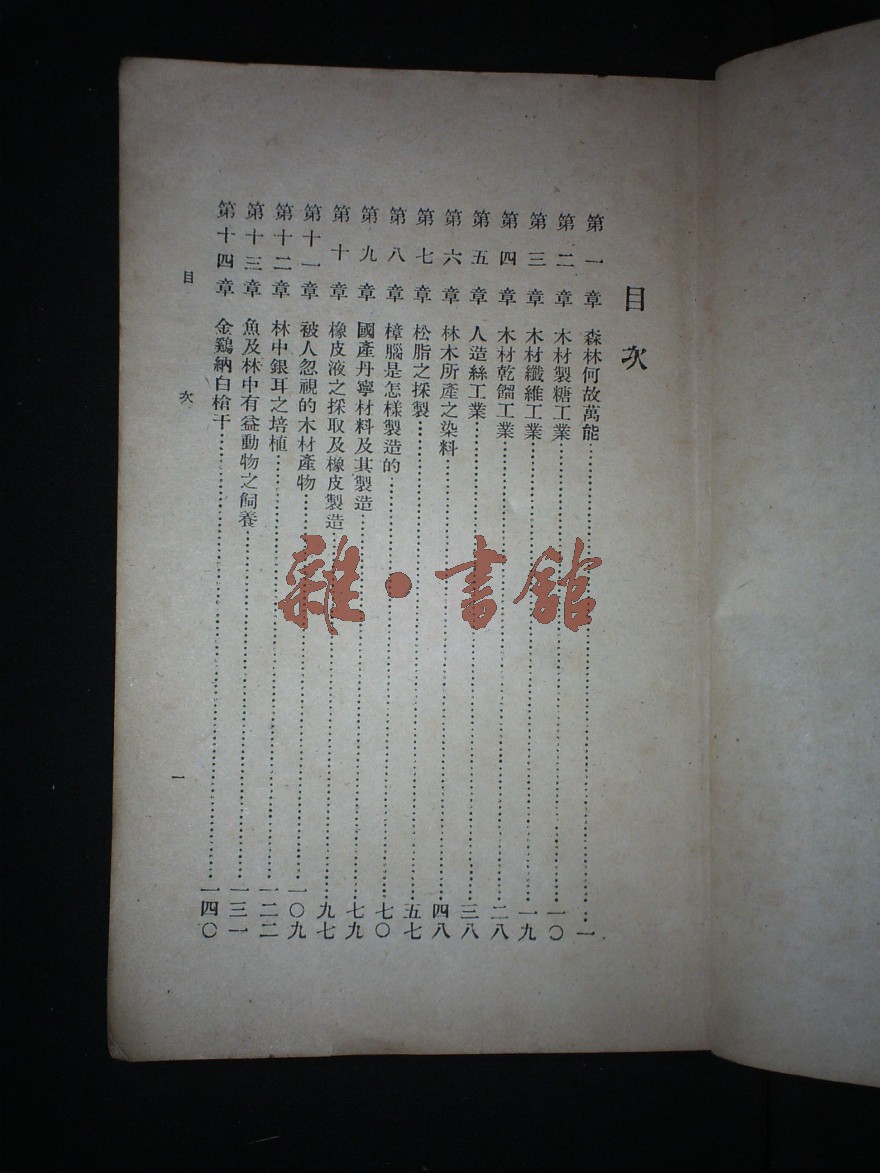 目次
第一章 森林何故萬能……一
第二章 木材製糖工業……一〇
第三章 木材纖維工業……一九
第四章 木材乾餾工業……二八
第五章 人造絲工業……三八
第六章 林木所產之染料……四八
第七章 松脂之採製……五七
第八章 樟腦是怎樣製造的……七〇
第九章 國產丹寧材料及其製造……七九
第十章 橡皮液之採取及橡皮製造……九七
第十一章 被人忽視的木材產物……一〇九
第十二章 林中銀耳之培植……一二二
第十三章 魚及林中有益動物之飼養……一三一
第十四章 金鷄納白槍干……一四〇
目次
一
雜·書館